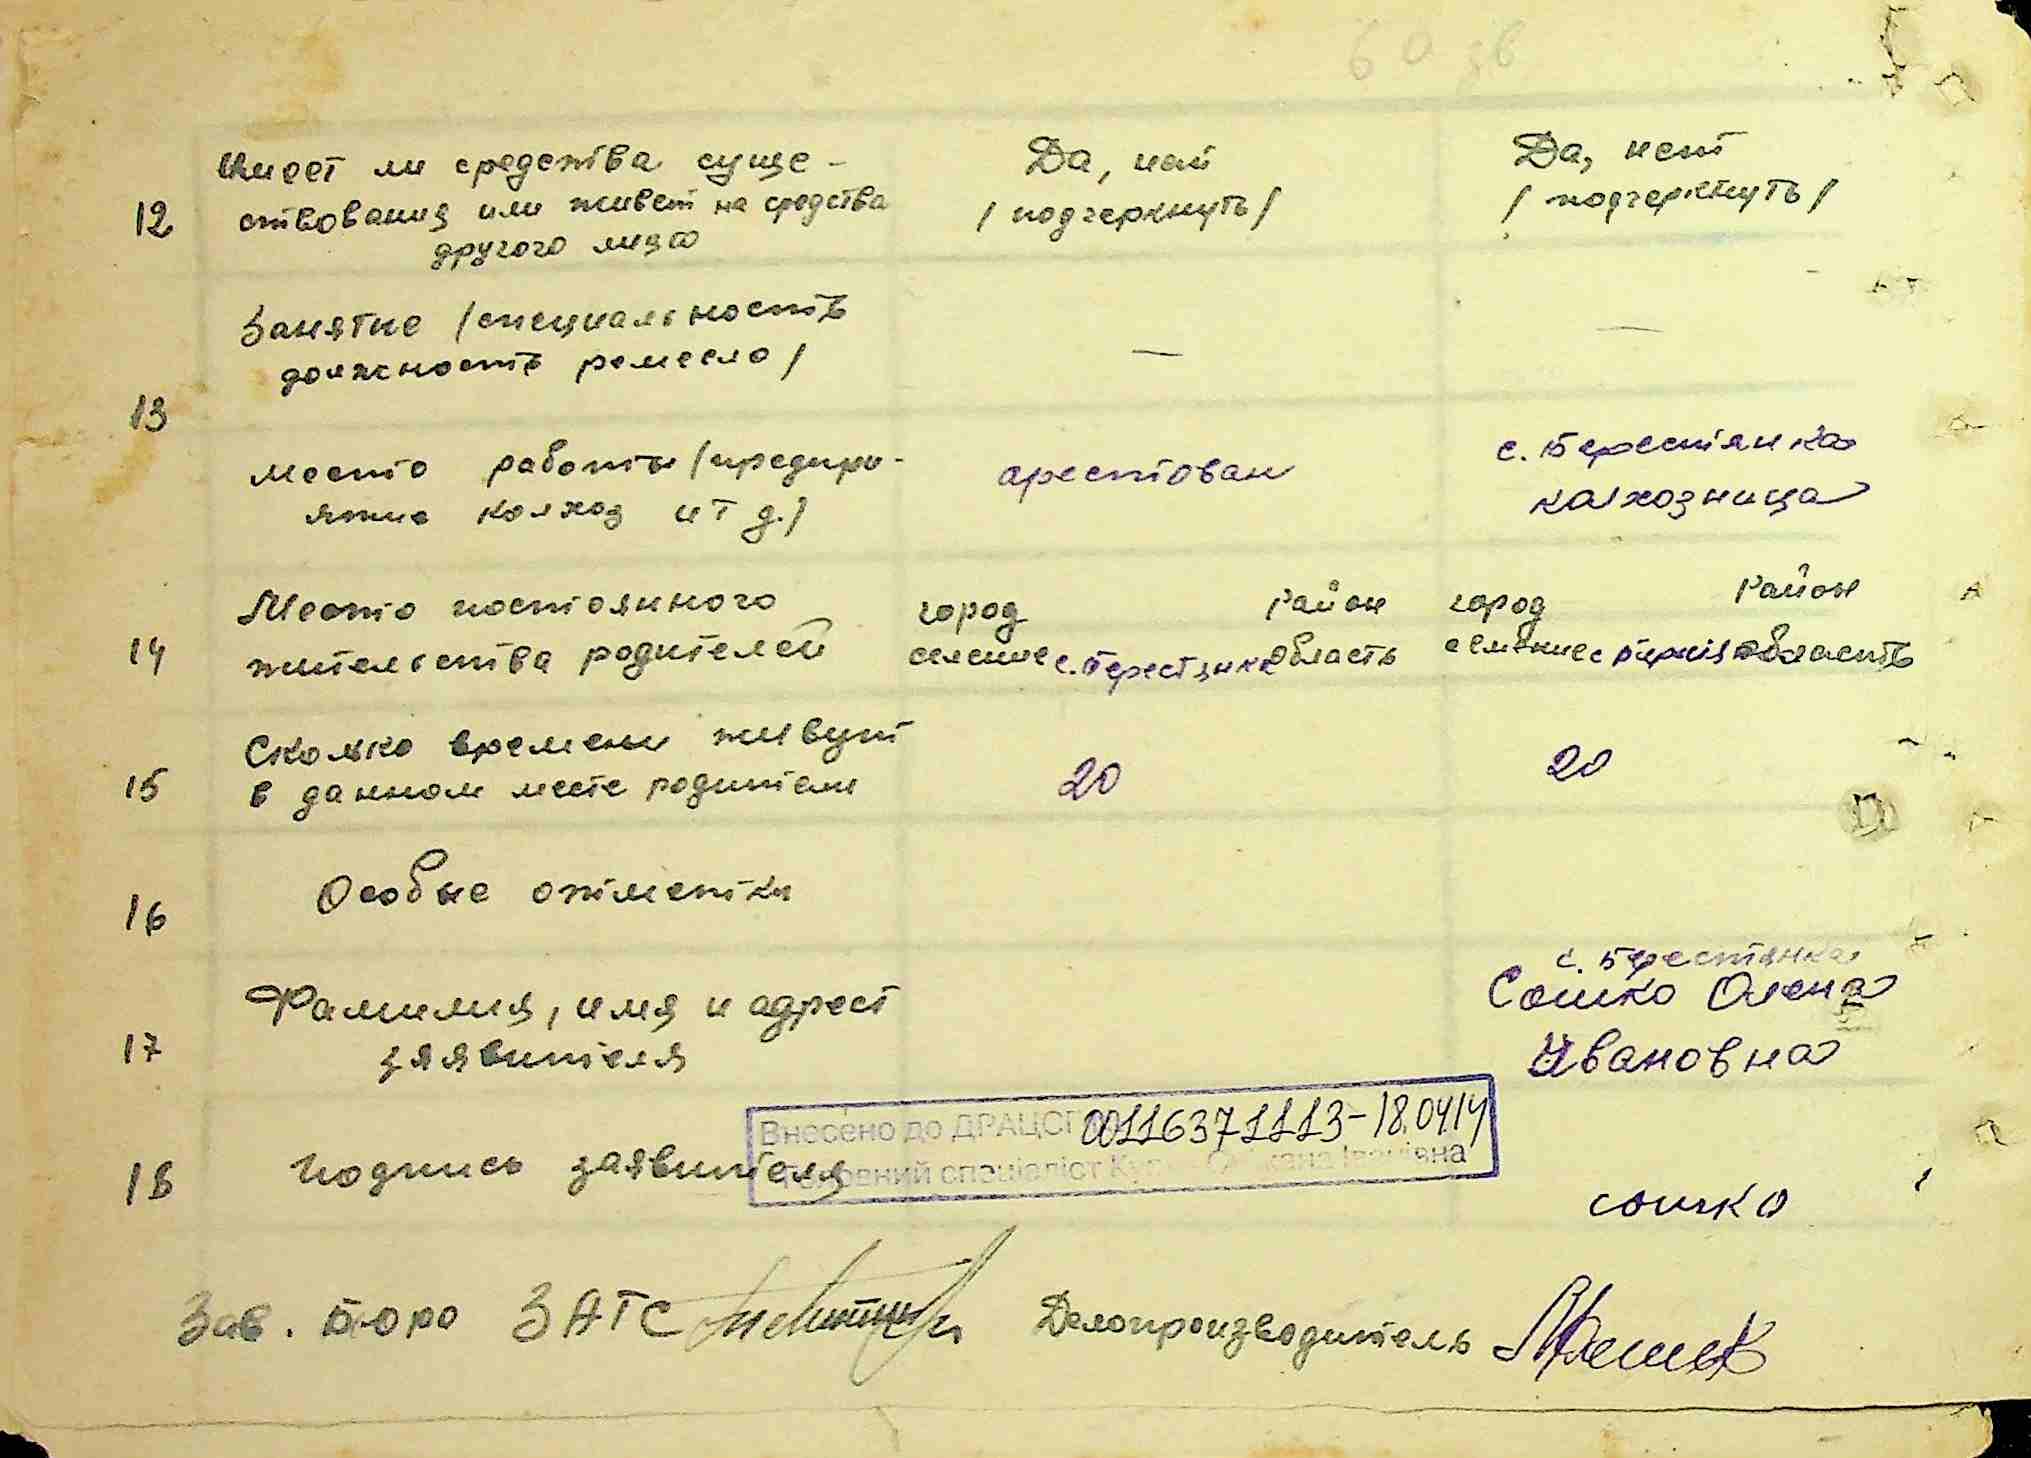 60 зв
12 Имеет ли средства суще-
ствования или живет на средства
другого лица
Да, нет
/ подчеркнуть /
Да, нет
/ подчеркнуть /
13 Занятие /специальность
должность ремесло /
—
—
место работы /предпри-
ятие колхоз и т д./
арестован
с. Берестянка
колхозница
14 Место постоянного
жительства родителей
город район
селение с. Берестянка область
город район
селение с область
15 Сколько времени живут
в данном месте родители
20
20
16 Особые отметки
17 Фамилия, имя и адрест
заявителя
с. Берестянка
Сошко Олена
Ивановна
Внесено до ДРАЦСГ 00116371113-18.0414
Головний спеціаліст Іванівна
18 подпись заявителя
сошко
Зав. Бюро ЗАГС
Делопроизводитель